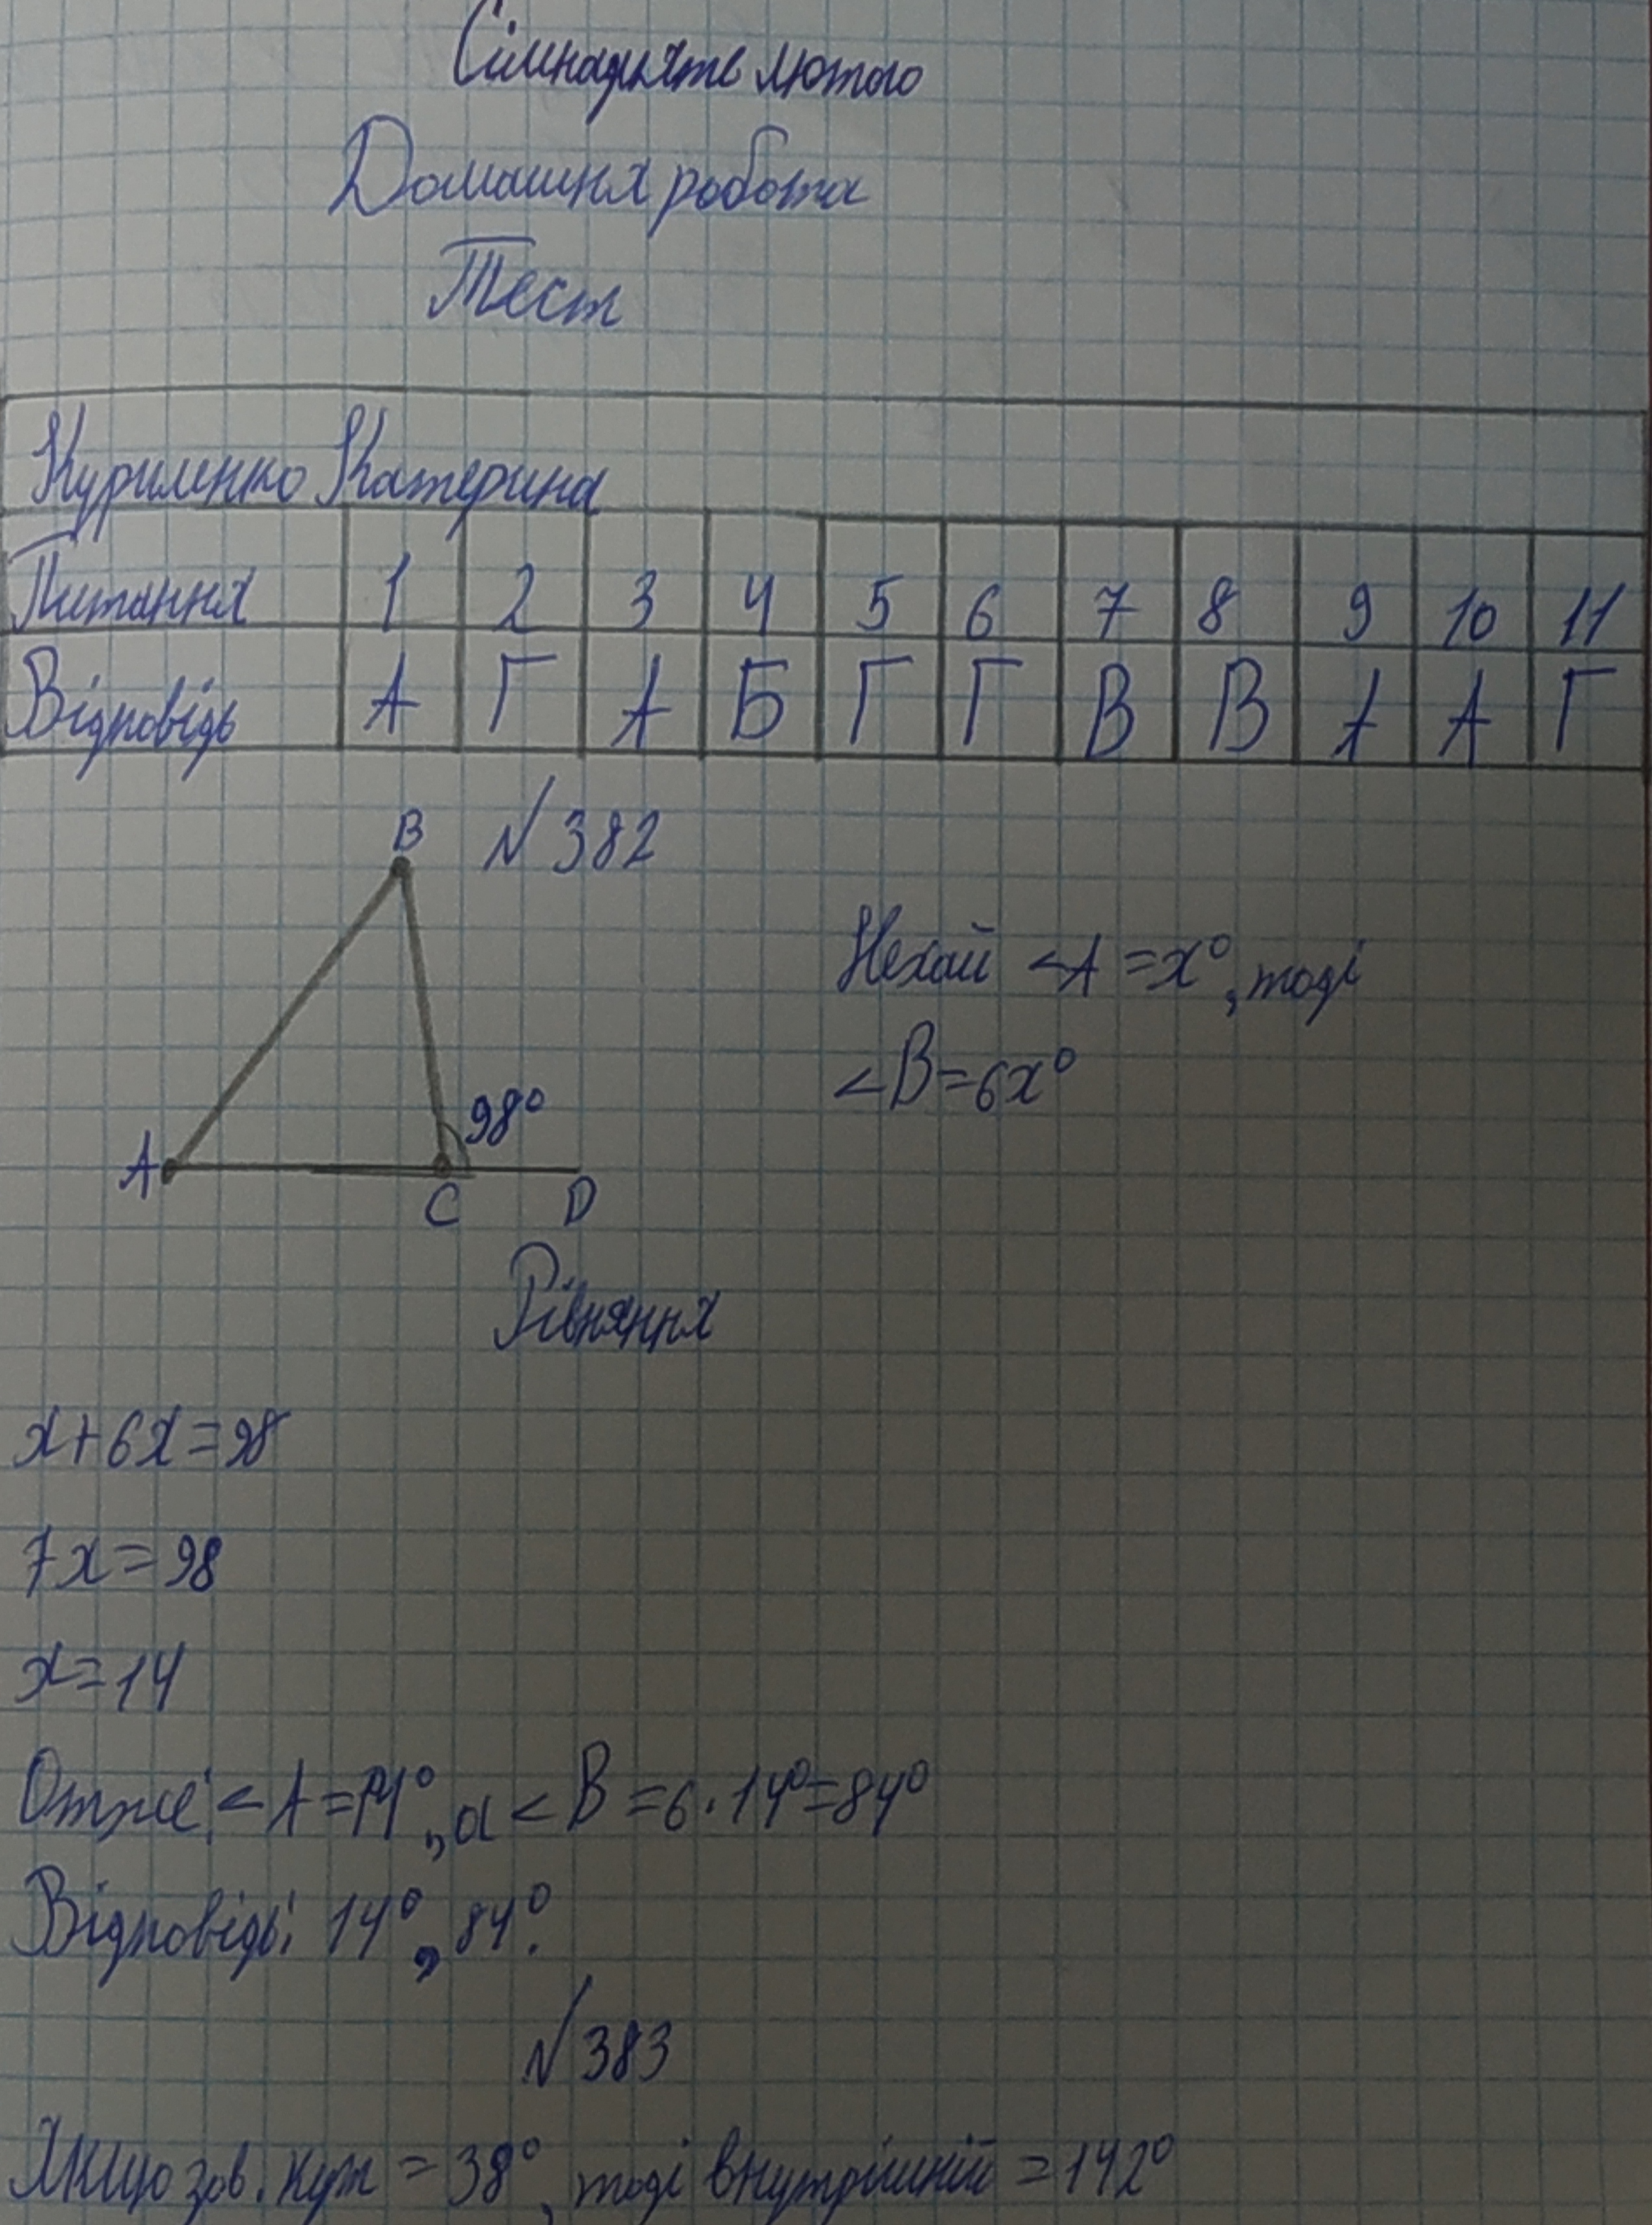 Сімнадцяте лютого
Домашня робота
Тест
Куриленко Катерина
Питання 1 2 3 4 5 6 7 8 9 10 11
Відповідь А Г А Б Г Г В В А А Г
B №382
Нехай <A = x°, тоді
<B = 6x°
98°
A C D
Рівняння
x+6x=98
7x=98
x=14
Отже, <A=14°, а <B=6·14°=84°
Відповідь: 14°, 84°.
№383
Якщо зов. кут = 38°, тоді внутрішній = 142°